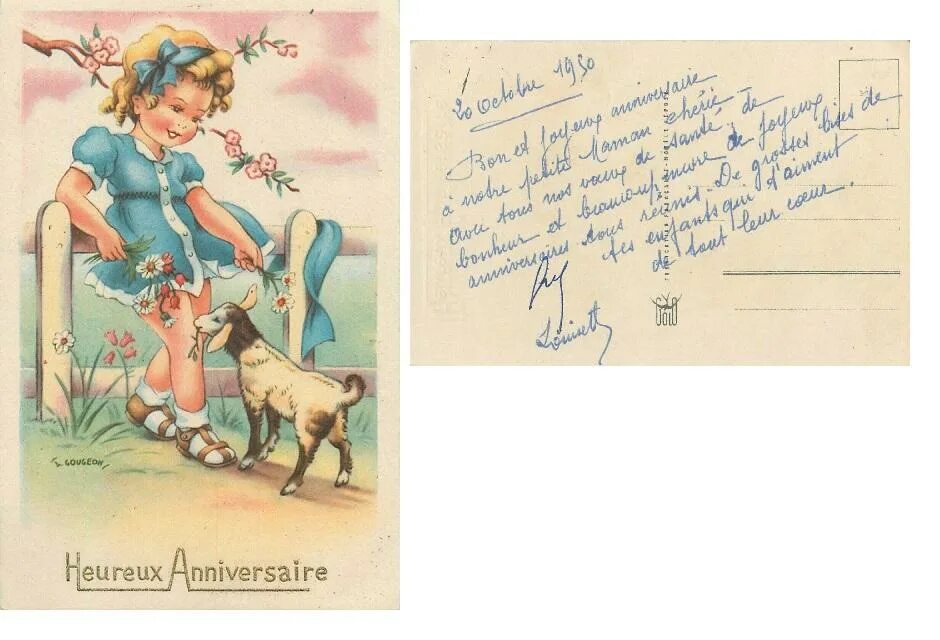 T. GOUGEON
Heureux Anniversaire
20 Octobre 1950
Bon et joyeux anniversaire
à notre petite Maman chérie -
avec tous nos vœux de santé, de
bonheur et beaucoup encore de joyeux
anniversaires tous réunis. De grosses bises de
tes enfants qui t'aiment
de tout leur cœur.
Louisette